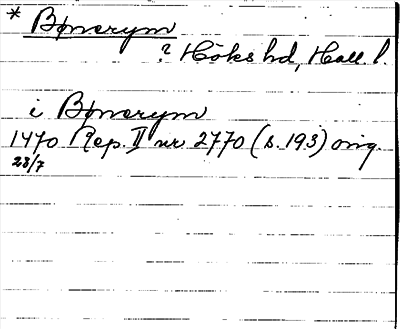 * Bønerym
? Höks hd, Hall. l.
i Bønerym
1470 Rep. II nr 2770 (s. 193) orig.
23/7